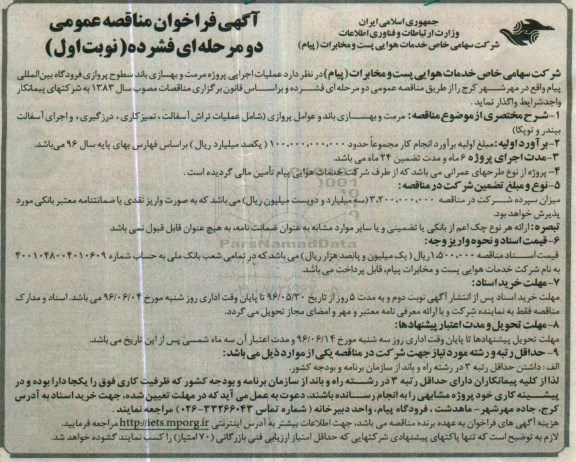 جمهوری اسلامی ایران
وزارت ارتباطات و فناوری اطلاعات
شرکت سهامی خاص خدمات هوایی پست و مخابرات (پیام)
آگهی فراخوان مناقصه عمومی
دو مرحله‌ای فشرده (نوبت اول)
شرکت سهامی خاص خدمات هوایی پست و مخابرات (پیام) در نظر دارد عملیات اجرایی پروژه مرمت و بهسازی باند سطوح پروازی فرودگاه بین‌المللی
پیام واقع در مهرشهر کرج را از طریق مناقصه عمومی دو مرحله‌ای فشرده و براساس قانون برگزاری مناقصات مصوب سال ۱۳۸۳ به شرکتهای پیمانکار
واجدشرایط واگذار نماید.
۱-شرح مختصری از موضوع مناقصه: مرمت و بهسازی باند و عوامل پروازی (شامل عملیات تراش آسفالت، تمیزکاری، درزگیری، و اجرای آسفالت
بیندر و توپکا)
۲-برآورد اولیه: مبلغ اولیه برآورد انجام کار مجموعاً حدود ۱۰۰,۰۰۰,۰۰۰,۰۰۰ (یکصد میلیارد ریال) براساس فهارس بهای پایه سال ۹۶ می‌باشد.
۳-مدت اجرای پروژه ۶ ماه و مدت تضمین ۲۴ ماه می باشد.
۴- پروژه از نوع طرحهای عمرانی می باشد که از طرف شرکت خدمات هوایی پیام تأمین مالی گردیده است.
۵-نوع و مبلغ تضمین شرکت در مناقصه:
میزان سپرده شرکت در مناقصه ۳,۲۰۰,۰۰۰,۰۰۰ (سه میلیارد و دویست میلیون ریال) می باشد که به صورت واریز نقدی یا ضمانتنامه معتبر بانکی مورد
پذیرش خواهد بود.
تبصره: ارائه هر نوع چک اعم از بانکی یا تضمینی و یا سایر موارد مشابه به عنوان ضمانت نامه، به هیچ عنوان قابل قبول نمی باشد
۶-قیمت اسناد و نحوه واریز وجه:
قیمت اسناد مناقصه ۱,۵۰۰,۰۰۰ ریال (یک میلیون و پانصد هزار ریال) می باشد که در تمامی شعب بانک ملی به حساب شماره ۴۰۰۱۰۴۸۰۰۴۰۱۰۶۰۹
به نام شرکت خدمات هوایی پست و مخابرات پیام، قابل پرداخت می باشد.
۷-مهلت خرید اسناد:
مهلت خرید اسناد پس از انتشار آگهی نوبت دوم و به مدت ۵ روز از تاریخ ۹۶/۰۵/۳۰ تا پایان وقت اداری روز شنبه مورخ ۹۶/۰۶/۰۴ می باشد. اسناد و مدارک
مناقصه فقط به نماینده شرکت و با ارائه معرفی نامه معتبر و مهر و امضای مجاز تحویل می گردد.
۸-مهلت تحویل و مدت اعتبار پیشنهادها:
مهلت تحویل پیشنهادها تا پایان وقت اداری روز سه شنبه مورخ ۹۶/۰۶/۱۴ و مدت اعتبار آن سه ماه شمسی پس از این تاریخ می باشد.
۹- حداقل رتبه و رشته مورد نیاز جهت شرکت در مناقصه یکی از موارد ذیل می باشد:
الف: داشتن حداقل رتبه ۳ در رشته راه و باند از سازمان برنامه و بودجه کشور.
لذا از کلیه پیمانکاران دارای حداقل رتبه ۳ در رشته راه و باند از سازمان برنامه و بودجه کشور که ظرفیت کاری فوق را یکجا دارا بوده و در
پیشینه کاری خود پروژه مشابهی را به انجام رسانده باشند، دعوت به عمل می آید که در مهلت تعیین شده، جهت خرید اسناد به آدرس
کرج، جاده مهرشهر - ماهدشت، فرودگاه پیام، واحد دبیرخانه (شماره تماس ۳۳۲۶۶۰۴۳-۰۲۶) مراجعه نمایند.
هزینه آگهی های فراخوان به عهده برنده مناقصه می باشد، جهت اطلاعات بیشتر به آدرس اینترنتی http://iets.mporg.ir مراجعه فرمایید.
لازم به توضیح است که تنها پاکتهای پیشنهادی شرکتهایی که حداقل امتیاز ارزیابی فنی بازرگانی (۷۰ امتیاز) را کسب نمایند گشوده خواهد شد.
ParsNamadData